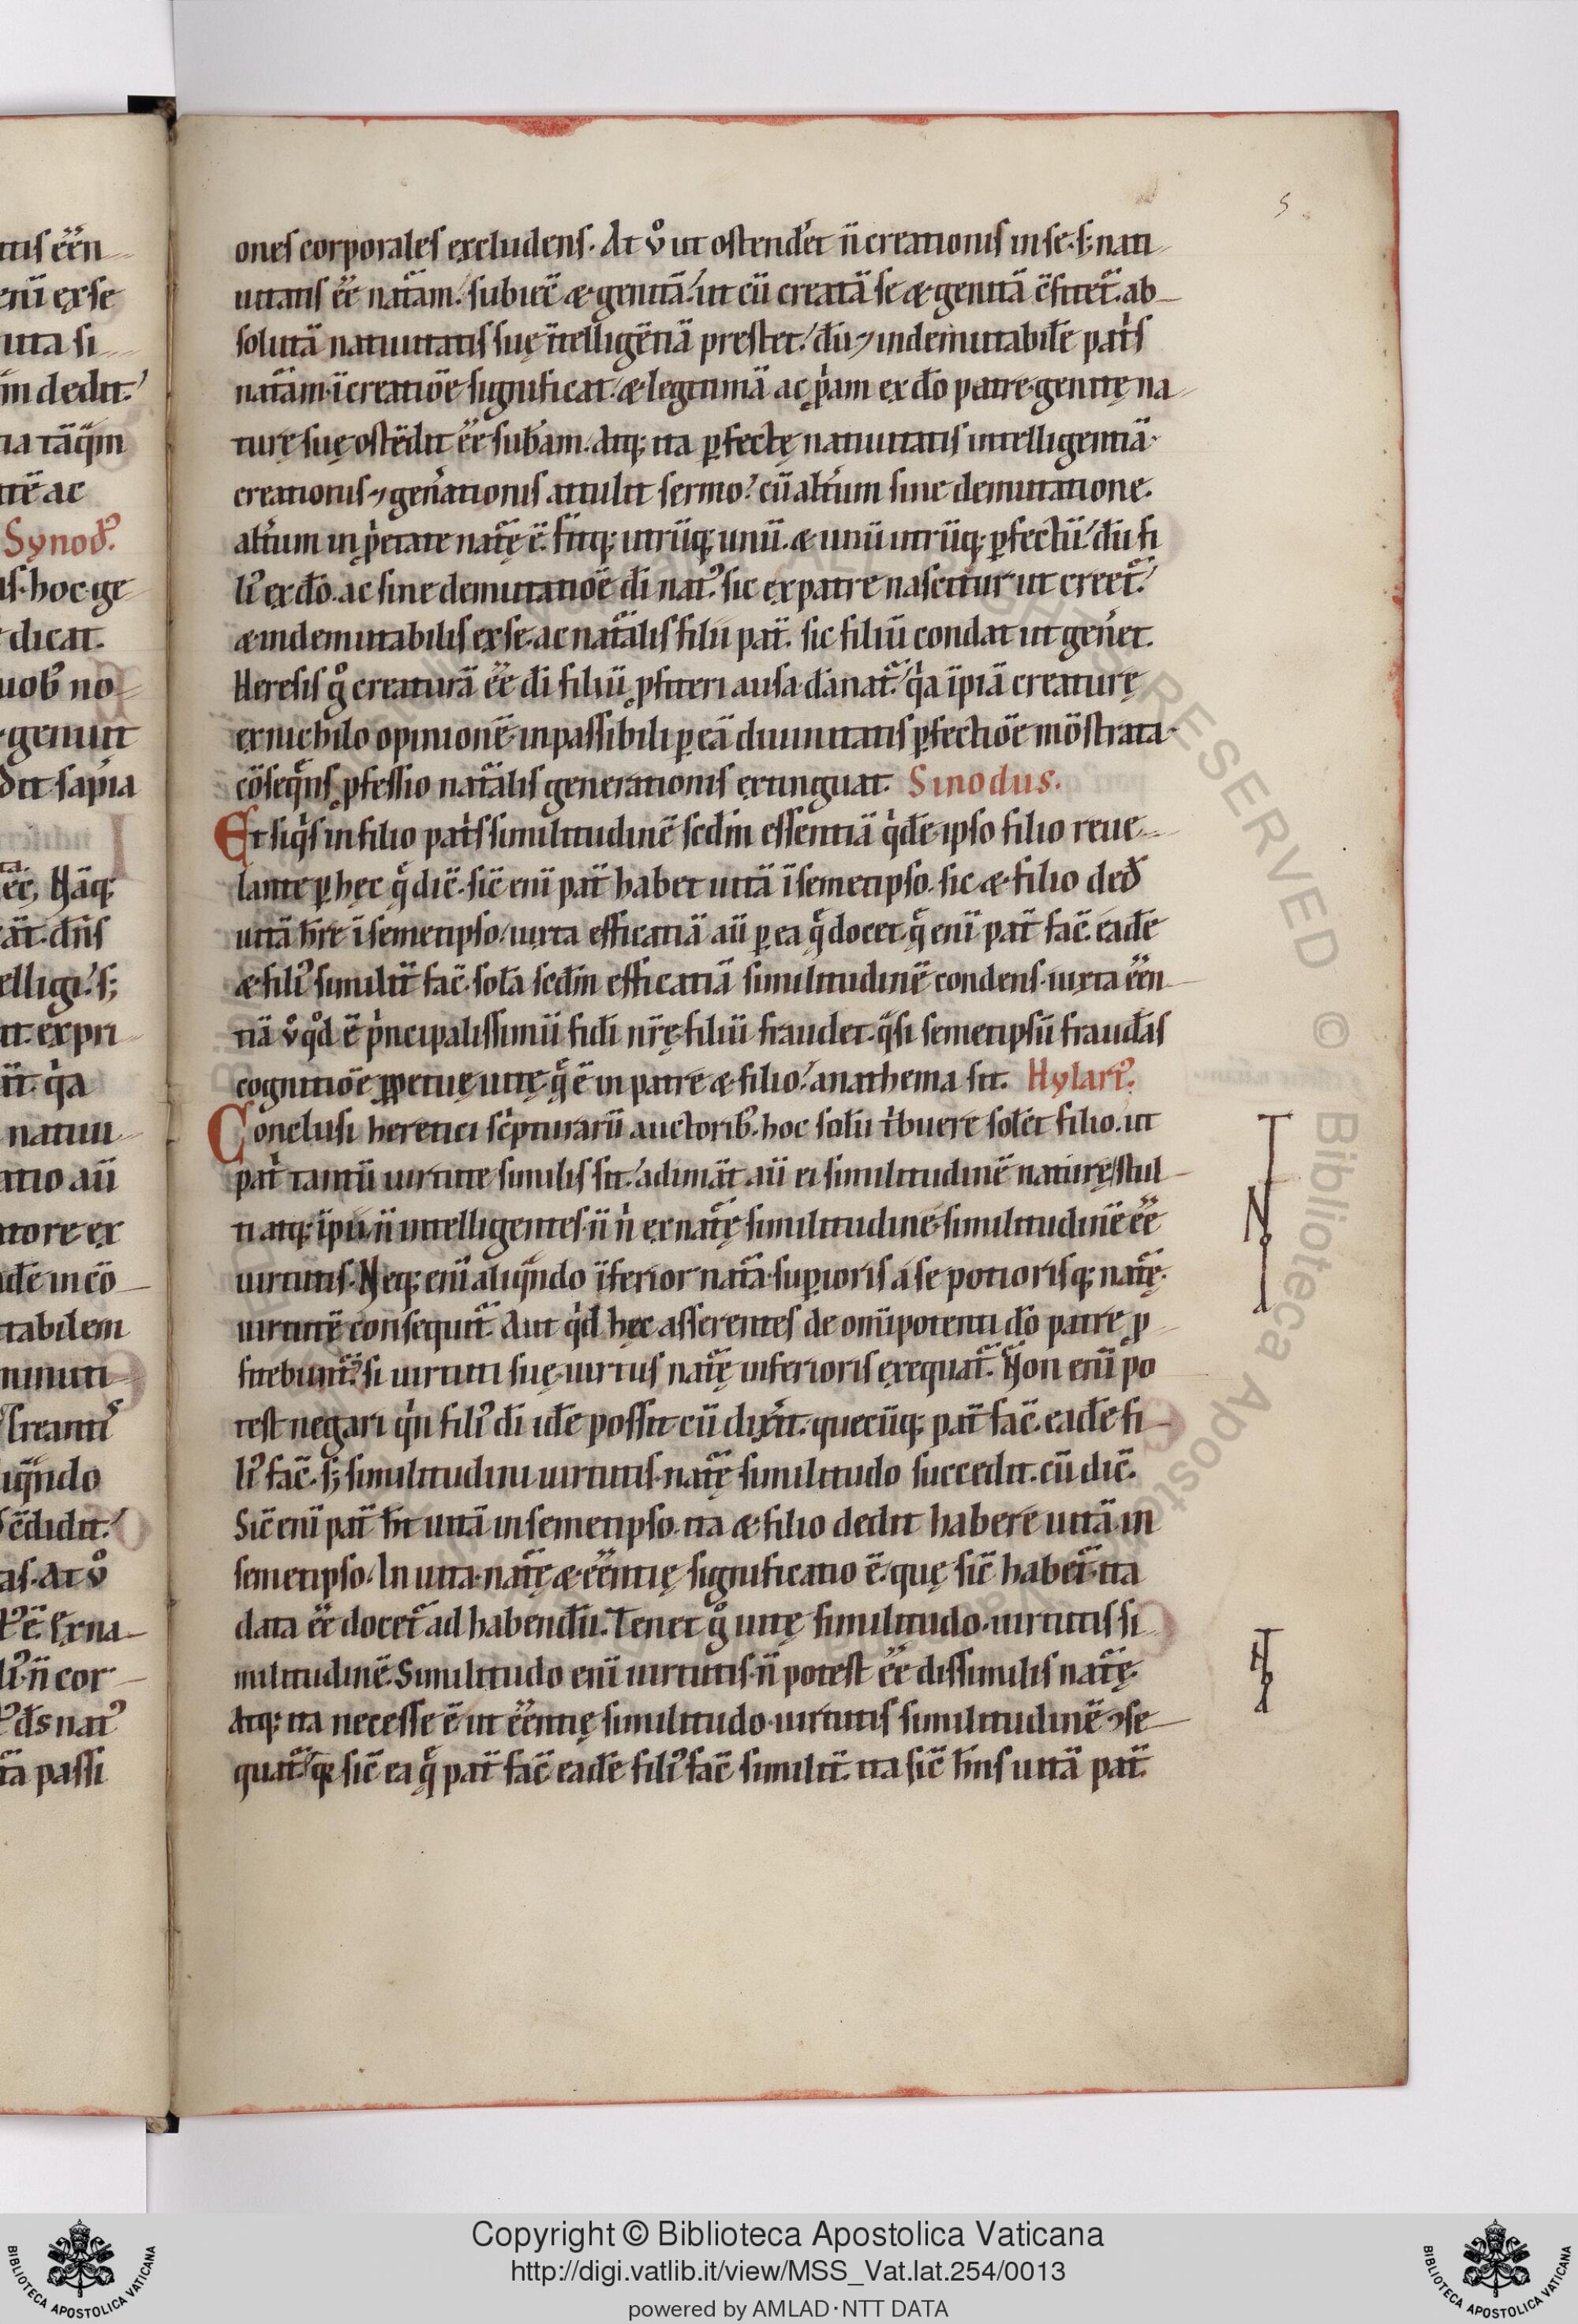 ones corporales excludens. At v̊ ut ostend̓et n̄ creationis in se. s; nati
uitatis eē̄ nat̄am. subiec̄ & genitā. ut cū creatā se & genitā c̄fitet̄. ab
solutā natiuitatis suę ītelligētiā prestet. dū ⁊ indemutabilē pat̓s
nat̄am. īcreatiōe significat. & legitimā ac ꝓp̓am ex dō patre genitę na
turę suę ostēdit eē̄ sub̄am. Atq; ita ꝑfectę natiuitatis intelligentiā.
creationis ⁊ gen̓ationis attulit sermo. cū alt̓um sine demutatione.
alt̓um in ꝓp̓etate nat̄ę ē. fitq; utrūq; unū. & unū utrūq; ꝑfectū. dū fi
li᾽ ex dō. ac sine demutatiōe dī nat᾽. sic ex patre nascitur ut creet̄.
& indemutabilis ex se. ac nat̄alis filii pat̄. sic filiū condat ut gen̓et.
Heresis g̊ creaturā eē̄ dī filiū ꝓfiteri ausa dānat̄. q̓a īpiā creaturę
ex nichilo opinionē. inpassibili ꝑ eā diuinitatis ꝑfectiōe mōstrata.
cōseq̄ns ꝓfessio nat̄alis generationis extinguat. Sinodus.
Et siq̓s in filio pat̓s similitudinē sedm̄ essentiā q̓dē. ipso filio reue
lante ꝑ hęc q̄ dic̄. sic̄ eni pat̄ habet uitā ī semetipso. sic & filio ded̓
uitā h̄re ī semetipso. iuxta efficatiā aū ꝑ ea q̄ docet. q̄ eni pat̄ fac̄. eadē
& fili᾽ similit̄ fac̄. sol̄a sedm̄ efficatiā similitudinē condens. iuxta eē̄n
tiā v̊ q̊d ē p̓ncipalissimū fidī nr̄ę filiū fraudet. q̄si semetipsū fraud̄as
cognitiōe ꝑpetuę uitę. q̄ ē in patre & filio. anathema sit. Hylari᾽.
Conclusi heretici sc̓pturarū auctorib᾽. hoc solū t̓buere solēt filio. ut
pat̓ tantū uirtute similis sit. adimāt aū ei similitudinē naturę. stul
ti atq; īpii. n̄ intelligentes. n̄ n̓ ex nat̄ę similitudine. similitudinē eē̄
uirtutis. Neq; eni aliq̄ndo īferior nat̄a. supioris a se potiorisq; nat̄ę.
uirtutē consequit̄. Aut q̓d hęc asserentes de omīpotenti dō patre ꝓ
fitebunt̄. si uirtuti suę. uirtus nat̄ę inferioris exequat̄. Non eni po
test negari q̓n fili᾽ dī idē possit cū dix̓it. quecūq; pat̄ fac̄. eadē fi
li᾽ fac̄. s; similitudini uirtutis. nat̄ę similitudo succedit. cū dic̄.
Sic̄ eni pat̄ h̄t uitā in semetipso. ita & filio dedit habere uitā in
semetipso. In uita. nat̄ę & eē̄ntię significatio ē. quę sic̄ habet̄. ita
data eē̄ docet̄ ad habendū. Tenet g̊ uitę similitudo. uirtutis si
militudinē. Similitudo eni uirtutis. n̄ potest eē̄ dissimilis nat̄ę.
Atq; ita necesse ē ut eē̄ntię similitudo. uirtutis similitudinē ꝯse
quat̄. q; sic̄ ea q̄ pat̄ fac̄ eadē fili᾽ fac̄ similit̄. ita sic̄ h̄ns uitā pat̄.
5
Copyright © Biblioteca Apostolica Vaticana
http://digi.vatlib.it/view/MSS_Vat.lat.254/0013
powered by AMLAD·NTT DATA
BIBLIOTECA APOSTOLICA VATICANA
BIBLIOTECA APOSTOLICA VATICANA